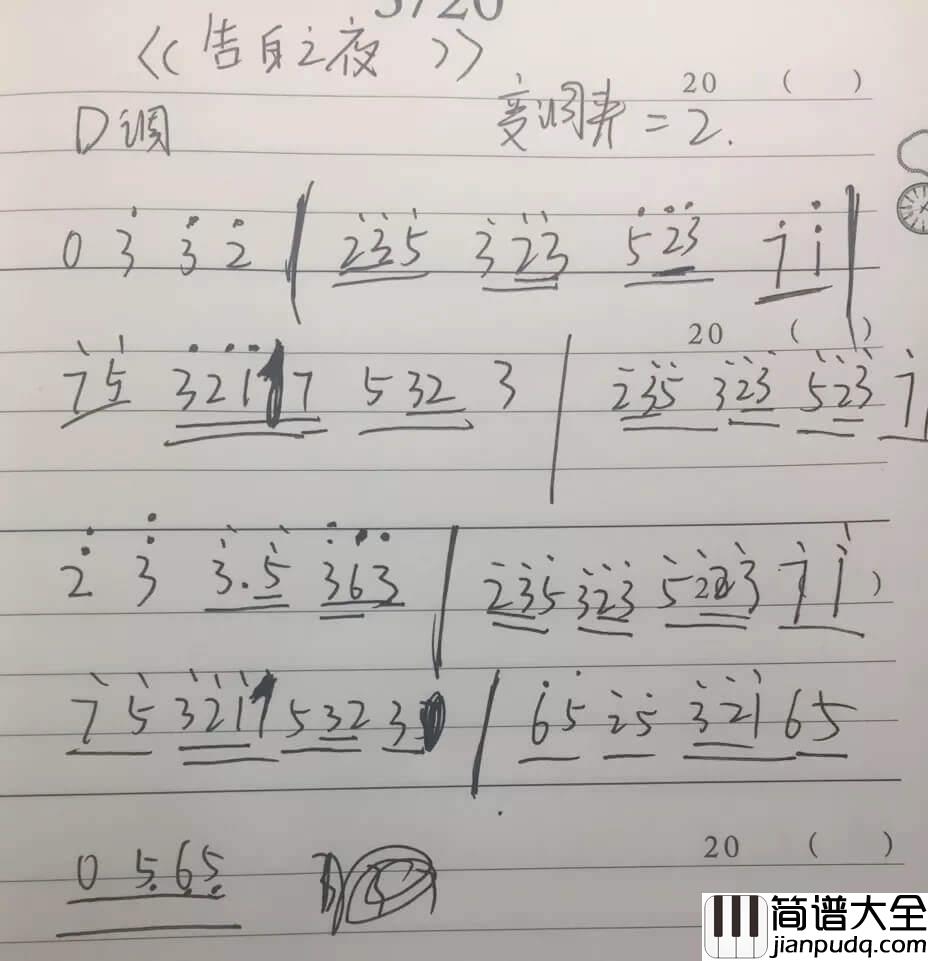 《告白之夜》
20 ( )
D调 变调夹=2.
0 3̇ 3̇ 2̇ | 2̇3̇5̇ 3̇2̇3̇ 5̇2̇3̇ 7̇ i̇ |
20 ( )
7̇ 5̇ 3̇2̇1̇ 7 5 32 3 | 2̇3̇5̇ 3̇2̇3̇ 5̇2̇3̇ 7̇
2̇ 3̇ 3̇.5̇ 3̇6̇3̇ | 2̇3̇5̇ 3̇2̇3̇ 5̇2̇3̇ 7̇ 1̇
7̇ 5̇ 3̇2̇1̇ 5 32 3 | 6̇ 5̇ 2̇5̇ 3̇2̇1̇ 65
20 ( )
0 5̣ 6̣ 5̣
简谱大全
jianpudq.com